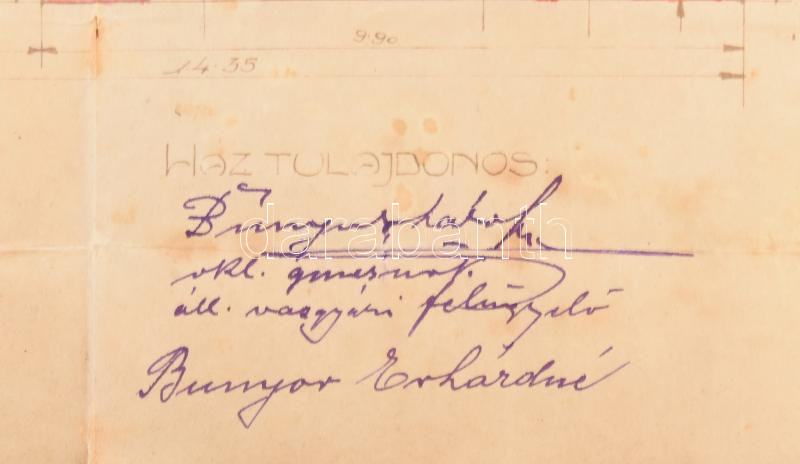 9·90
14·35
HÁZ TULAJDONOS:
okl. gmérnök.
áll. vasgyári felügyelő
Bunyor Erhárdné
darabanth